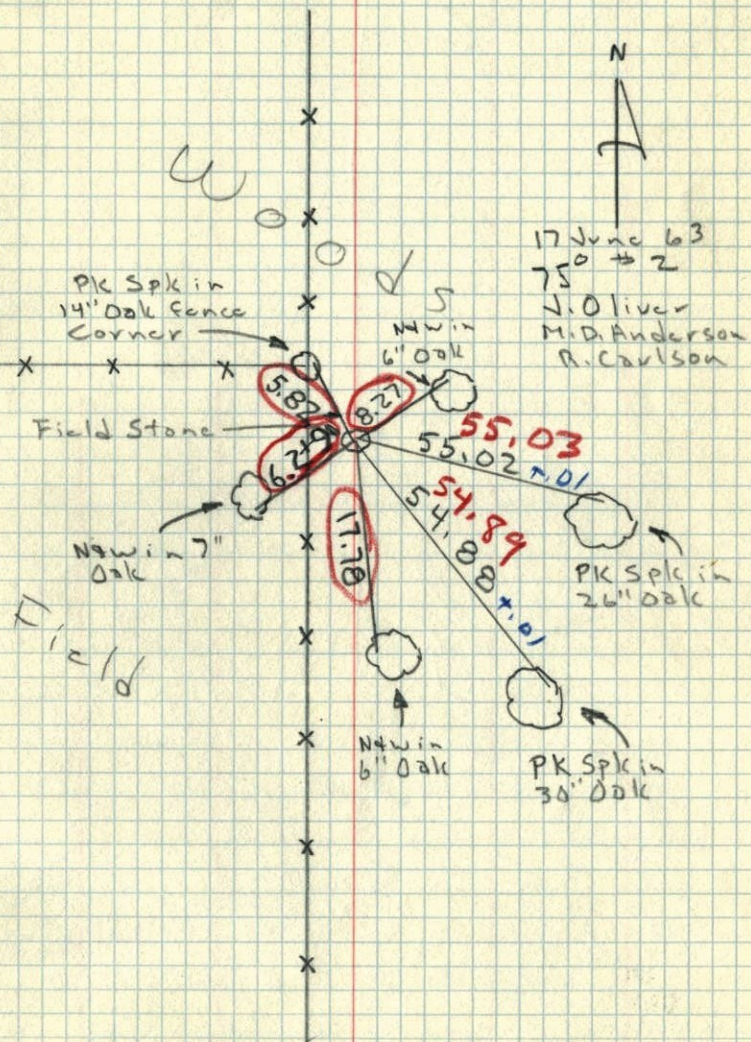 N
17 June 63
75°
J. Oliver
M.D. Anderson
R. Carlson
Woods
PK Spk in
14" Oak Fence
Corner
N&W in
6" Oak
5.82
8.27
Field Stone
55.03
55.02 +.01
54.89
54.88 +.01
17.78
N&W in 7"
Oak
PK Spk in
26" Oak
Field
N&W in
6" Oak
PK Spk in
30" Oak